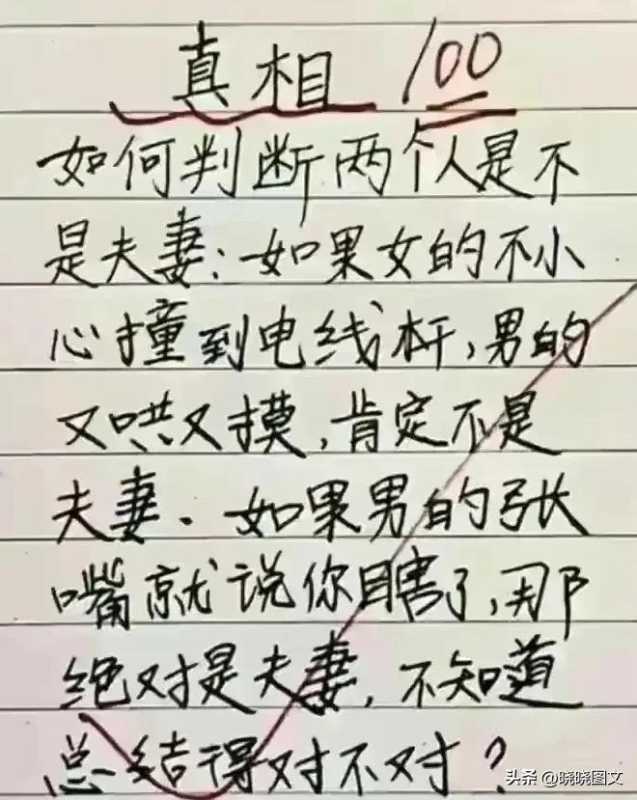 真相 100
如何判断两个人是不
是夫妻:如果女的不小
心撞到电线杆,男的
又哄又摸,肯定不是
夫妻.如果男的张
嘴就说你瞎了,那
绝对是夫妻,不知道
总结得对不对?
头条 @晓晓图文